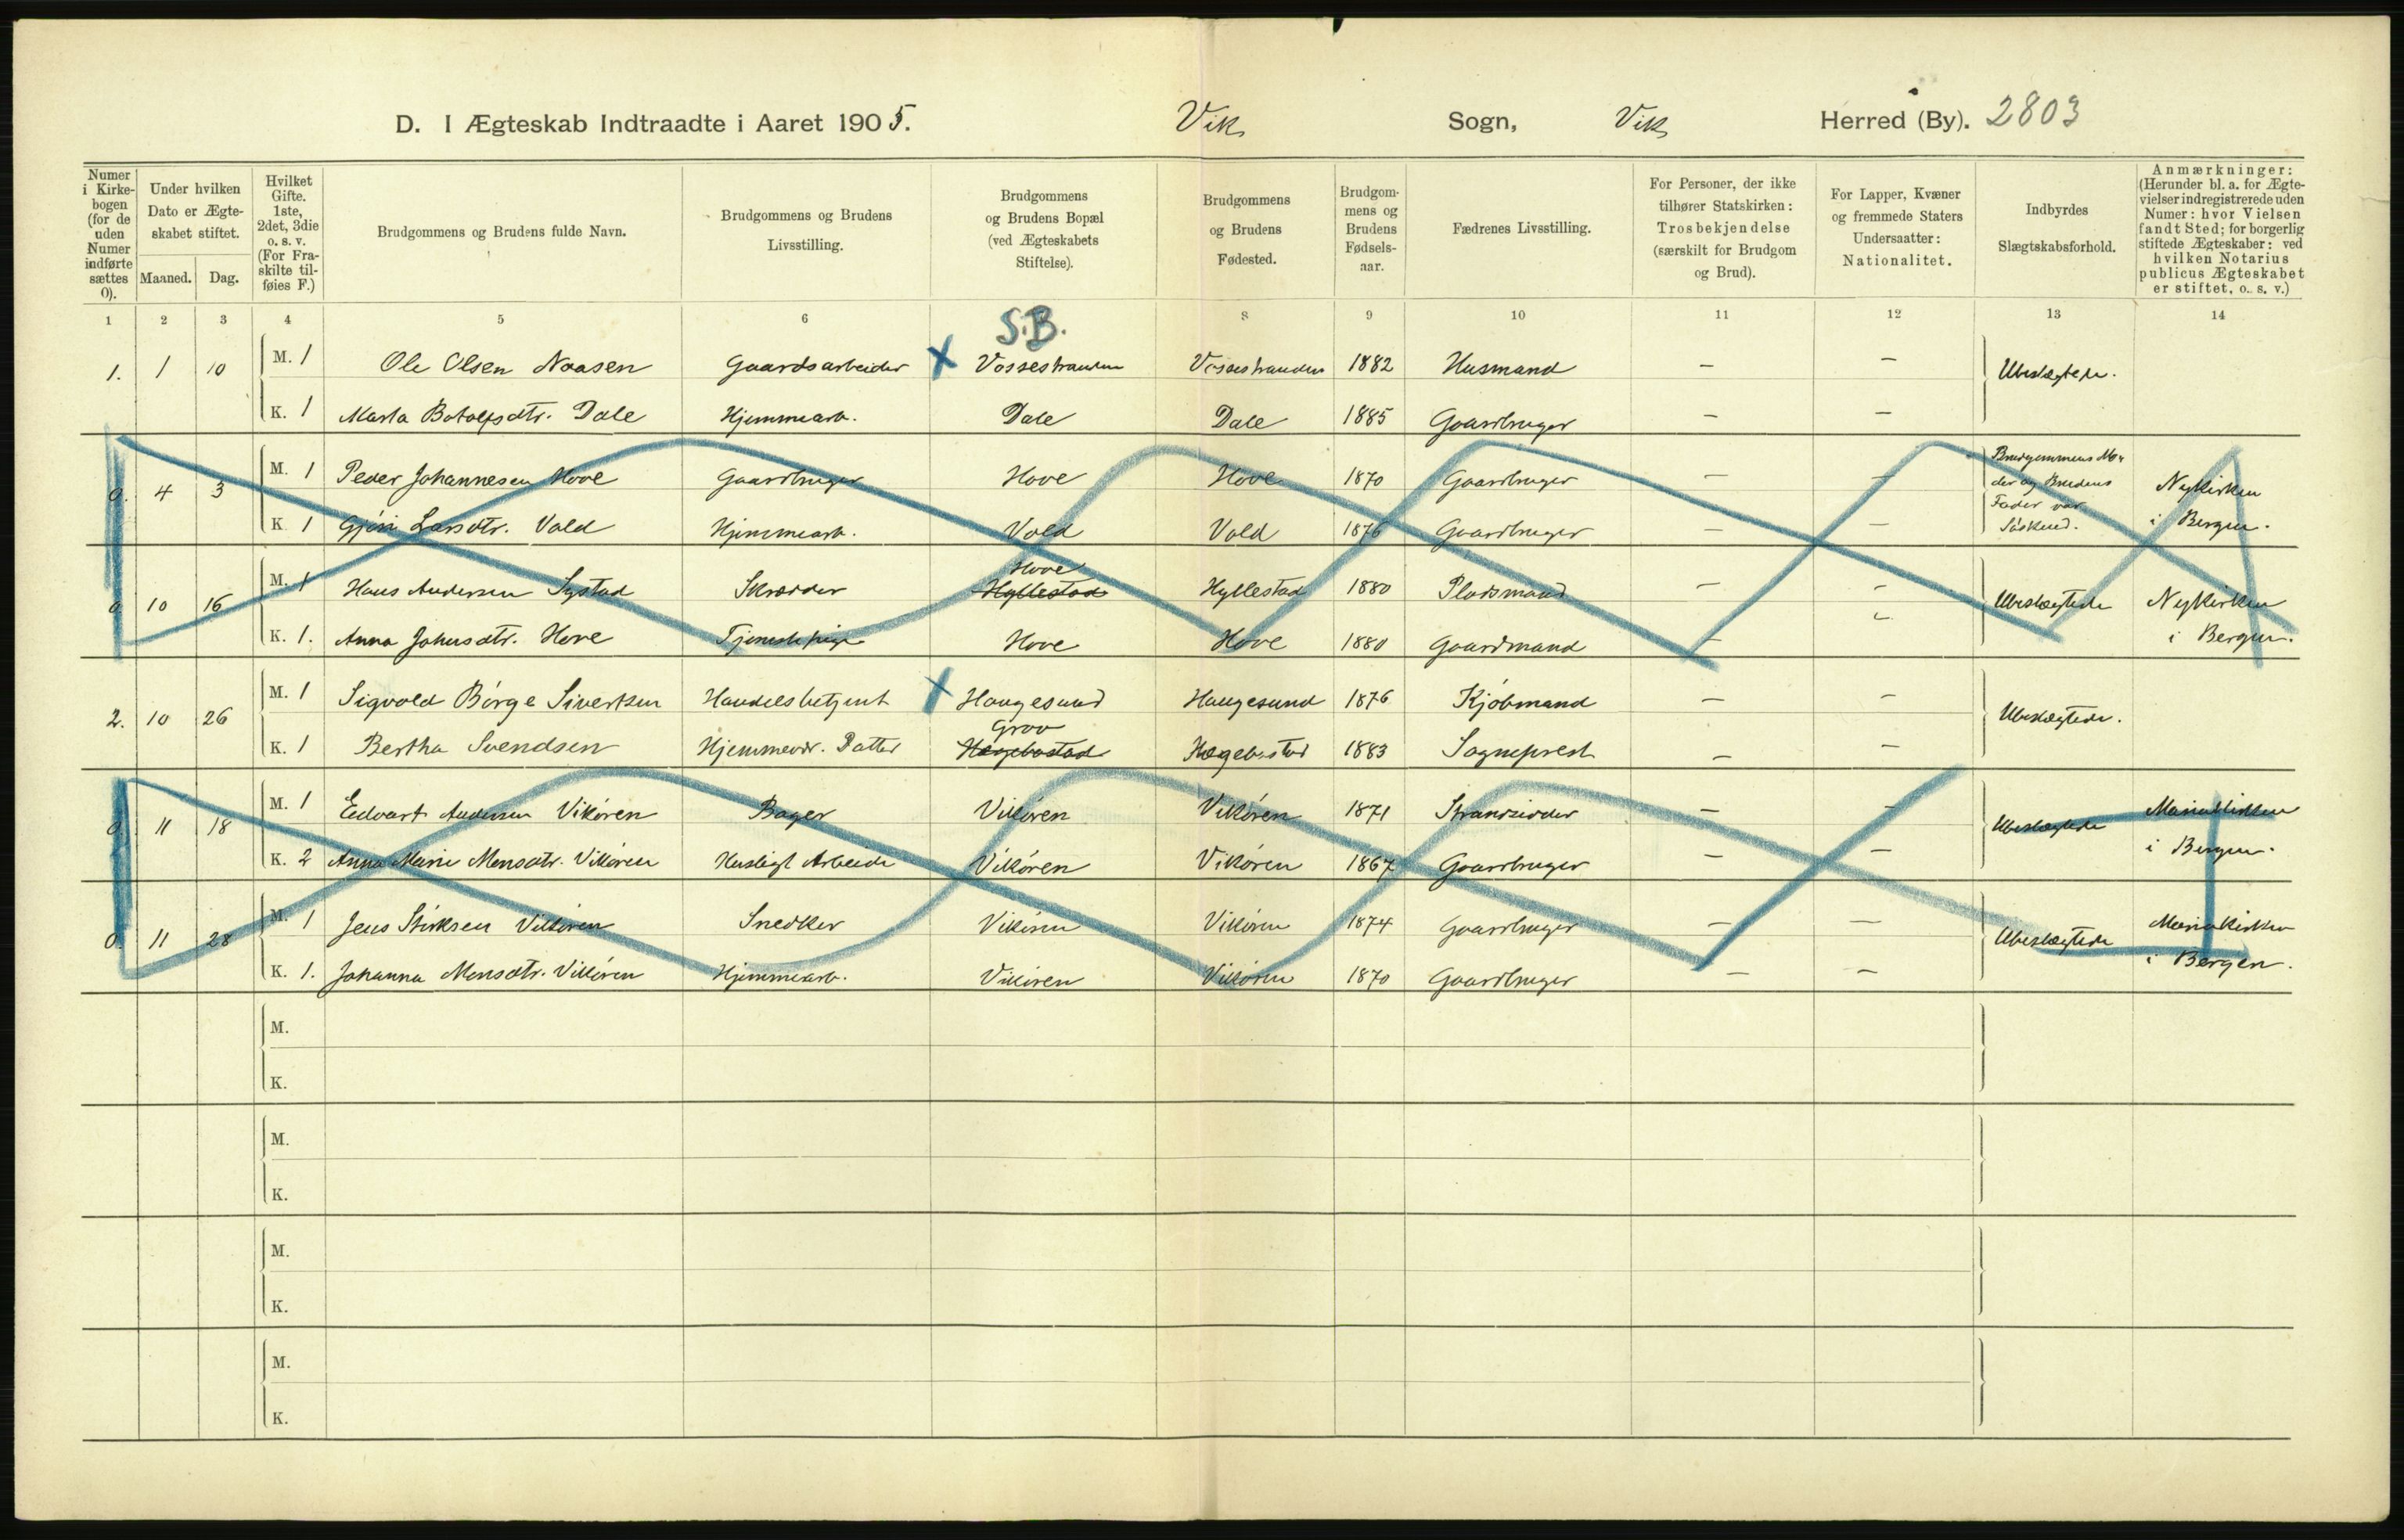 D. I Ægteskab Indtraadte i Aaret 1905. Vik Sogn, Vik Herred (By). 2803
Numer i Kirkebogen (for de uden Numer indførte sættes 0).
Under hvilken Dato er Ægteskabet stiftet.
Maaned. Dag.
Hvilket Gifte. 1ste, 2det, 3die o. s. v. (For Fraskilte tilføies F.)
Brudgommens og Brudens fulde Navn.
Brudgommens og Brudens Livsstilling.
Brudgommens og Brudens Bopæl (ved Ægteskabets Stiftelse).
Brudgommens og Brudens Fødested.
Brudgommens og Brudens Fødselsaar.
Fædrenes Livsstilling.
For Personer, der ikke tilhører Statskirken: Trosbekjendelse (særskilt for Brudgom og Brud).
For Lapper, Kvæner og fremmede Staters Undersaatter: Nationalitet.
Indbyrdes Slægtskabsforhold.
Anmærkninger: (Herunder bl. a. for Ægtevielser indregistrerede uden Numer: hvor Vielsen fandt Sted; for borgerlig stiftede Ægteskaber: ved hvilken Notarius publicus Ægteskabet er stiftet, o. s. v.)
1 2 3 4 5 6 8 9 10 11 12 13 14
S.B.
1. 1 10 M. 1 Ole Olsen Naasen Gaardsarbeider X Vossestranden Vossestranden 1882 Husmand — — Ubeslægtede.
K. 1 Marta Botolfsdtr. Dale Hjemmearb. Dale Dale 1885 Gaardbruger — —
0. 4 3 M. 1 Peder Johannesen Hove Gaardbruger Hove Hove 1870 Gaardbruger — — Brudgommens Moder og Brudens Fader var Søskend. Nykirken
K. 1 Gjøri Larsdtr. Vold Hjemmearb. Vold Vold 1876 Gaardbruger — — i Bergen.
Hove
0. 10 16 M. 1 Hans Andersen Systad Skrædder Hyllestad Hyllestad 1880 Pladsmand — — Ubeslægtede Nykirken
K. 1. Anna Johnsdtr. Hove Tjenestepige Hove Hove 1880 Gaardmand — — i Bergen.
2. 10 26 M. 1 Sigvald Børge Sivertsen Handelsbetjent X Haugesund Haugesund 1876 Kjøbmand — — Ubeslægtede.
Grov
K. 1 Bertha Svendsen Hjemmevr. Datter Hægebostad Hægebostad 1883 Sogneprest — —
0. 11 18 M. 1 Edvart Andersen Vikøren Bager Vikøren Vikøren 1871 Strandsidder — — Ubeslægtede Mariakirken
K. 2 Anna Marie Monsdtr. Vikøren Husligt Arbeide Vikøren Vikøren 1867 Gaardbruger — — i Bergen.
0. 11 28 M. 1 Jens Stirksen Vikøren Snedker Vikøren Vikøren 1874 Gaardbruger — — Ubeslægtede Mariakirken
K. 1. Johanna Monsdtr. Vikøren Hjemmearb. Vikøren Vikøren 1870 Gaardbruger — — i Bergen.
M.
K.
M.
K.
M.
K.
M.
K.